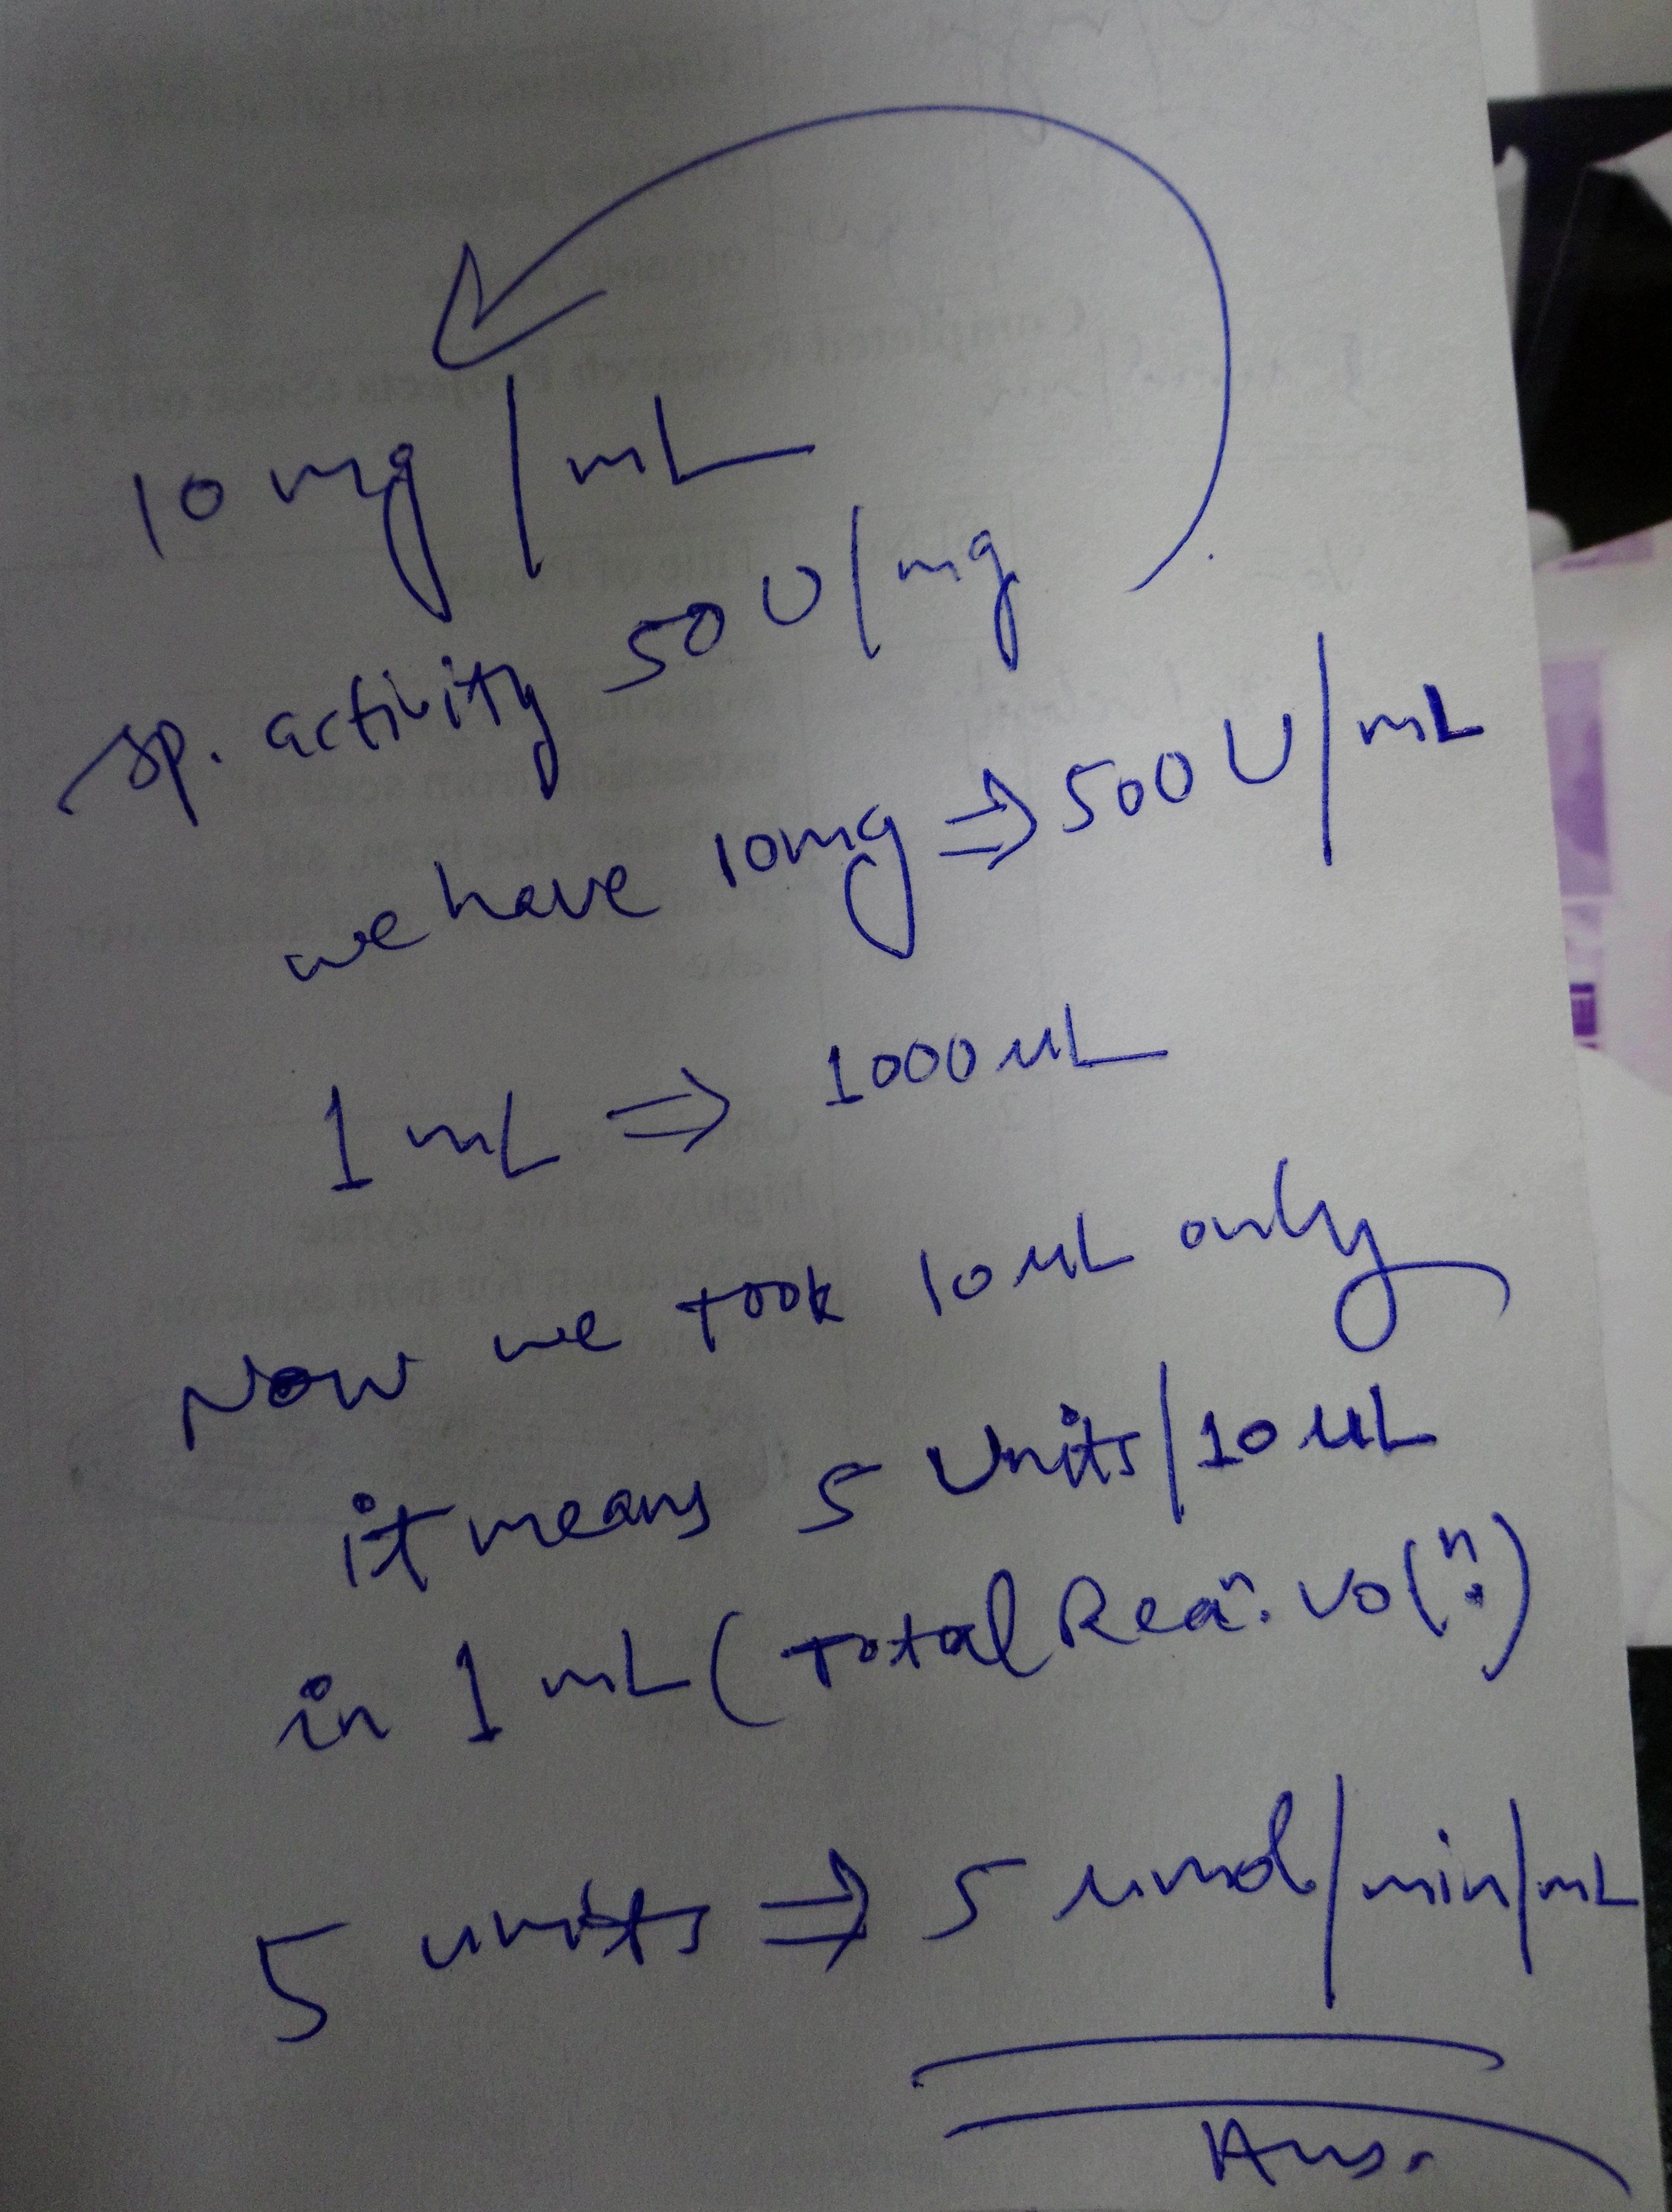 10 mg / mL
sp. activity 50 U/mg
we have 10mg ⇒ 500 U/mL
1 mL ⇒ 1000 uL
Now we took 10 uL only
it means 5 Units/10 uL
in 1 mL (Total Reaⁿ. Volⁿ.)
5 units ⇒ 5 umol/min/mL
Ans.